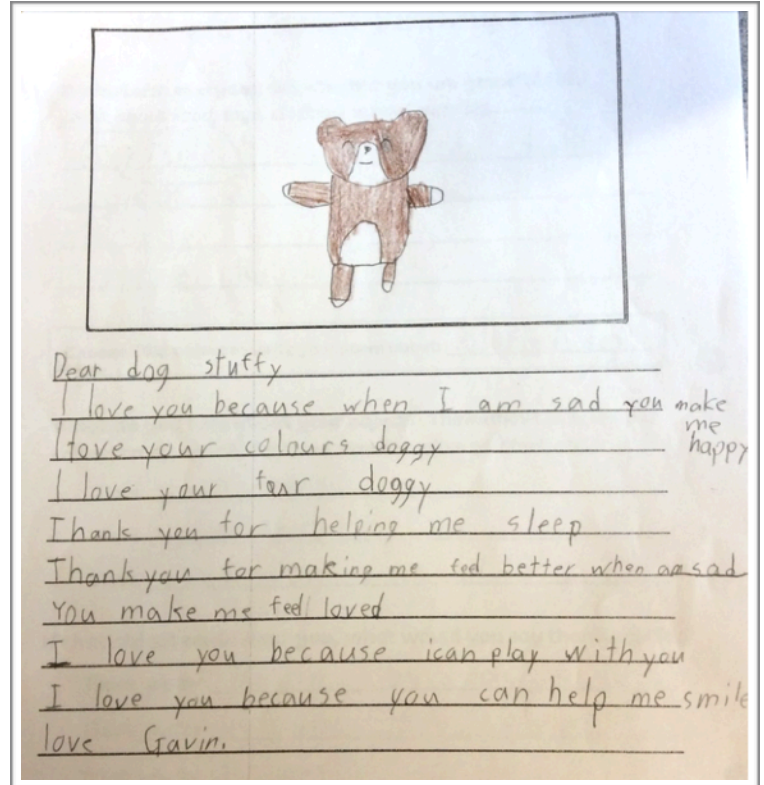 Dear dog stuffy
I love you because when I am sad you make
me
happy
I love your colours doggy
I love your doggy
Thank you for helping me sleep
Thank you for making me feel better when am sad
You make me feel loved
I love you because ican play with you
I love you because you can help me smile
love Gavin.